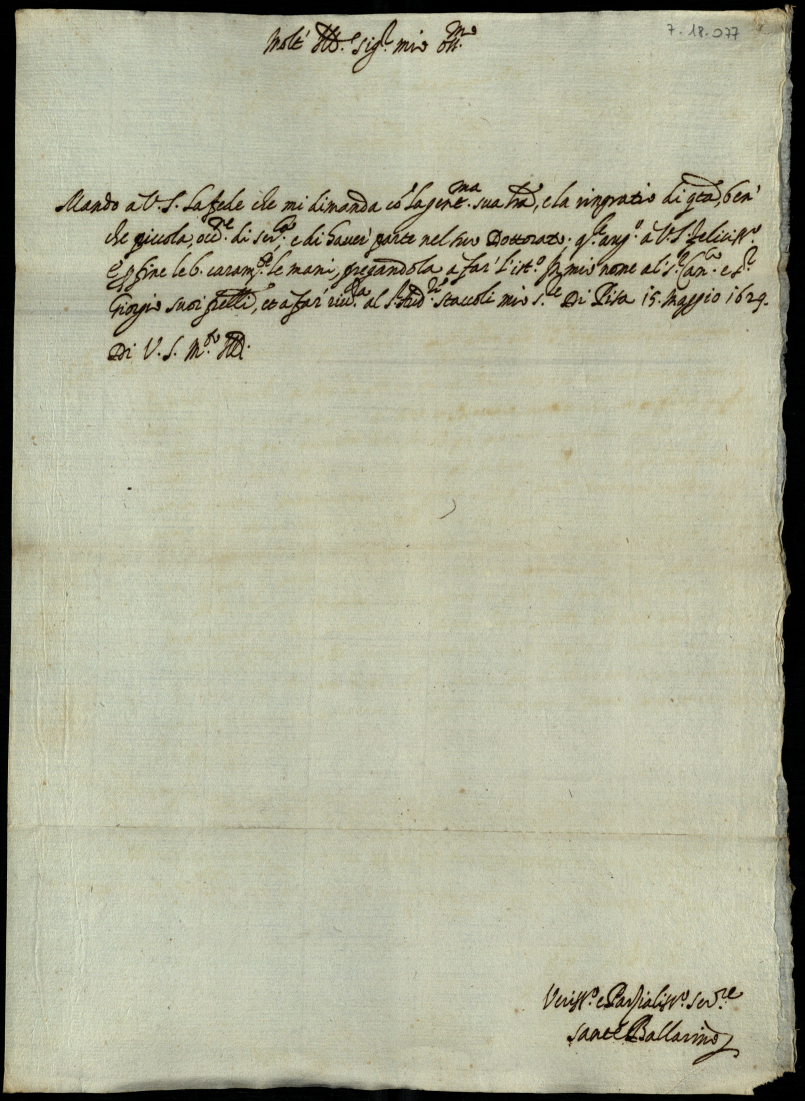 7.18.077
Molt' Ill.e sig.r mio oss.mo
Mando a V.S. la fede che mi dimanda cō la gent.ma sua l'ra, e la ringratio di q.ta, ben'
che piccola, occ.ne di ser.la e di haver' parte nel suo Dottorato; q.le aug.o à V.S. feliciss.o
E p fine le b. caram.te le mani, pregandola a far' l'ist.o in mio nome al S.r Can.co e S.r
Giorgio suoi fr'elli, et a far riv.za al S. Aud.re Staccoli mio s.re Di Pisa 15. Maggio 1629.
Di V. S. M.to Ill.
Veriss.o e Partialiss.o ser.re
Sante Ballarino